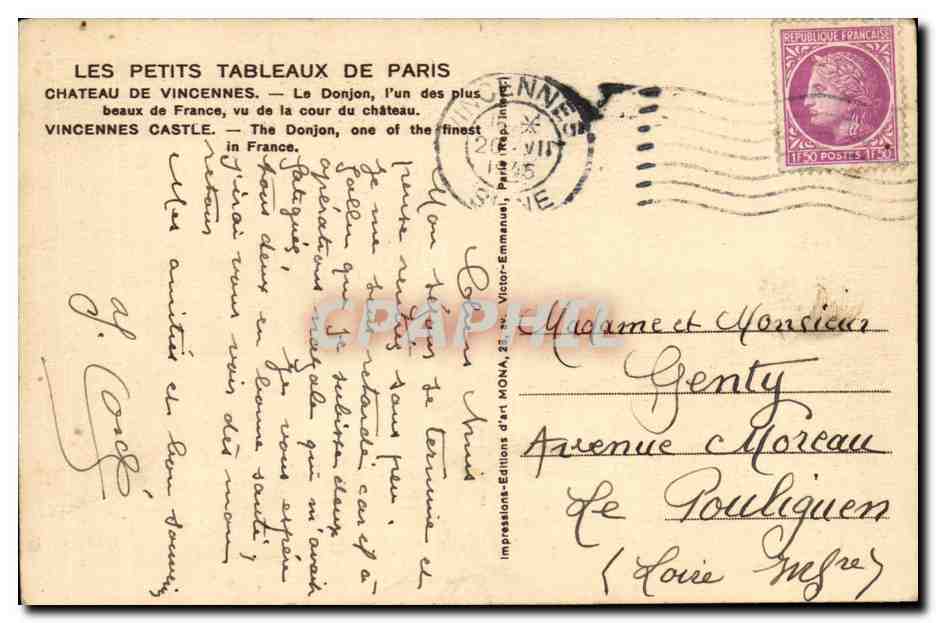 LES PETITS TABLEAUX DE PARIS
CHATEAU DE VINCENNES. — Le Donjon, l'un des plus
beaux de France, vu de la cour du château.
VINCENNES CASTLE. — The Donjon, one of the finest
in France.
VINCENNES
SEINE
REPUBLIQUE FRANÇAISE
1F50 POSTES 1F50
Impressions-Editions d'art MONA, 28, av. Victor-Emmanuel, Paris (Rep. Interd.
Chers Amis
Mon séjour se termine et
pense rentrer sous peu.
Je me suis retardé car il a
fallu que je subisse deux
opérations nasale qui m'avait
fatigués,
Je vous espère
tous deux en bonne santé,
j'irai vous voir dès mon
retour
Mes amitiés et bon souvenir
Madame et Monsieur
Genty
Avenue Moreau
Le Pouliguen
(Loire Infre)
CPARPHIL